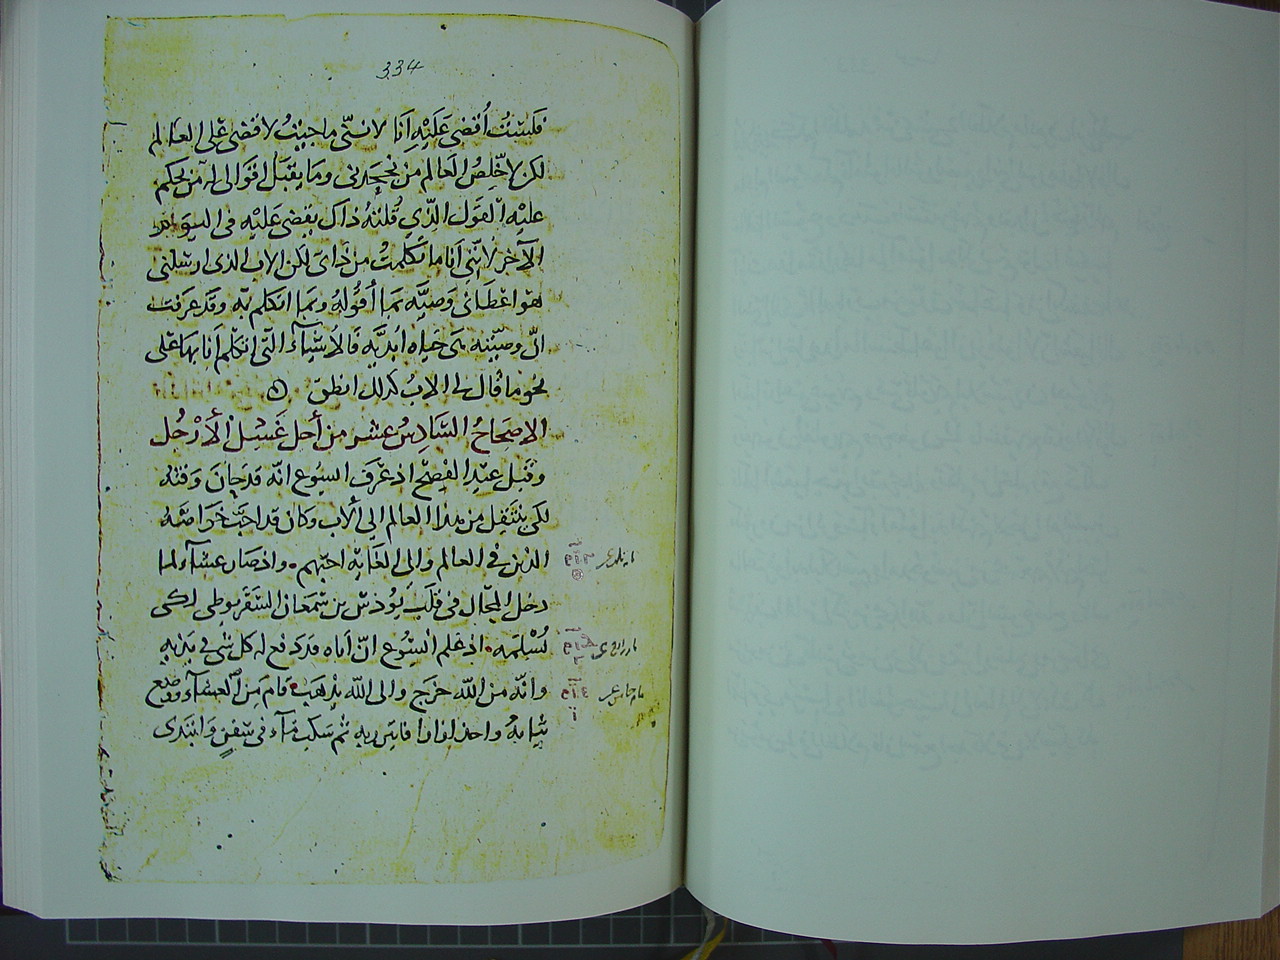 334
فلستُ أقضي عَلَيْهِ أنا لانني ما جيتُ لاقضي على العالم
لكن لاخلِصُ العالم من يجحدني وما يقبَل اقوالي له من يحكم
عليه القول الذي قلتهُ ذاك يقضي عليه في اليوم
الآخر لانني أنا ما تكلمتُ من ذاتي لكن الاب الذي ارسلني
هو اعطاني وصيّه بما أقولهُ وبما اتكلم به وقد عرفت
انّ وصيّته هي حياه أبديّه فالاشياء التي اتكلم أنا بها على
نحو ما قال لي الاب كذلك انطق
الاصحاحُ السّادِسُ عشر من أجل غَسْل الأرْجُل
وقبل عيد الفِصْح اذ عَرَف ايسُوع انّه قد حان وقته
لكي ينتقل من هذا العالم الى الاب وكان قد احبّ خواصّه
الذين في العالم والى الغايه احبّهم واذ صار عشاء ولما
دخل المحّال في قلب يوذس بن شمعان السّقريوطي لكي
يُسْلمه اذ علم ايسُوع انّ اباه قد دفع له كل شي في يديه
وانّه من الله خرج والى الله يذهب قام من العشاء ووضع
ثيابهُ واخذ لفافا فاتزر به ثم سكب ماء في سَفَنٍ وابتدى